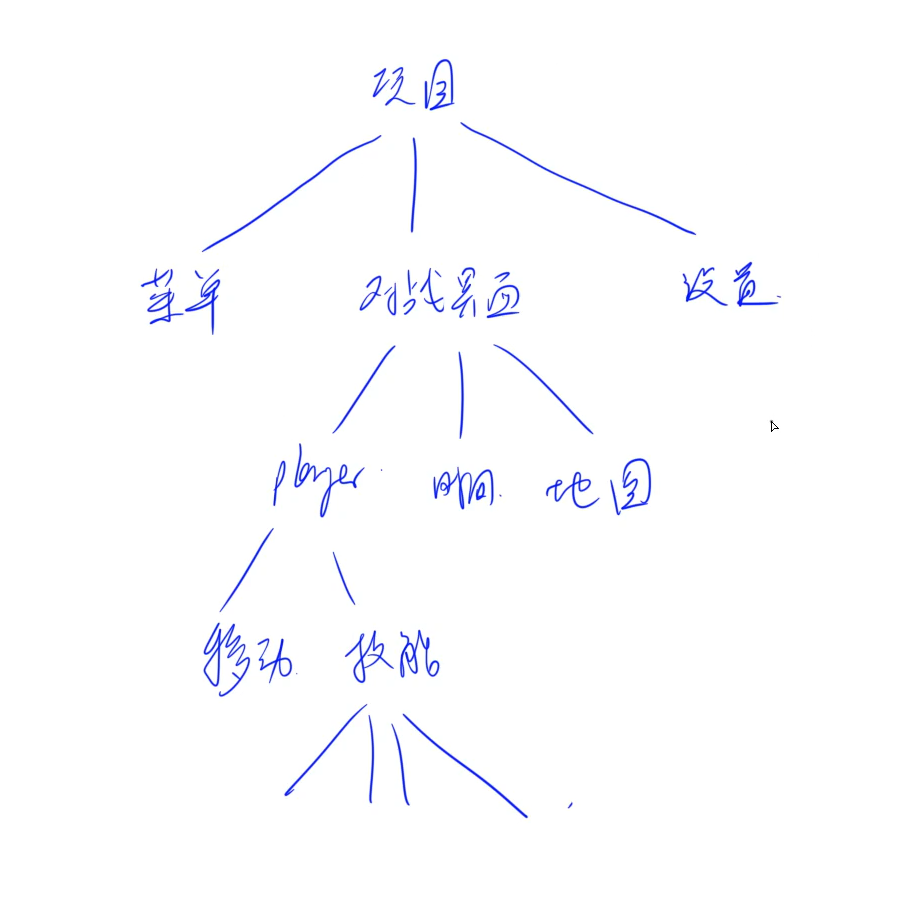 项目
菜单 对战界面 设置.
player 时间. 地图
移动. 技能